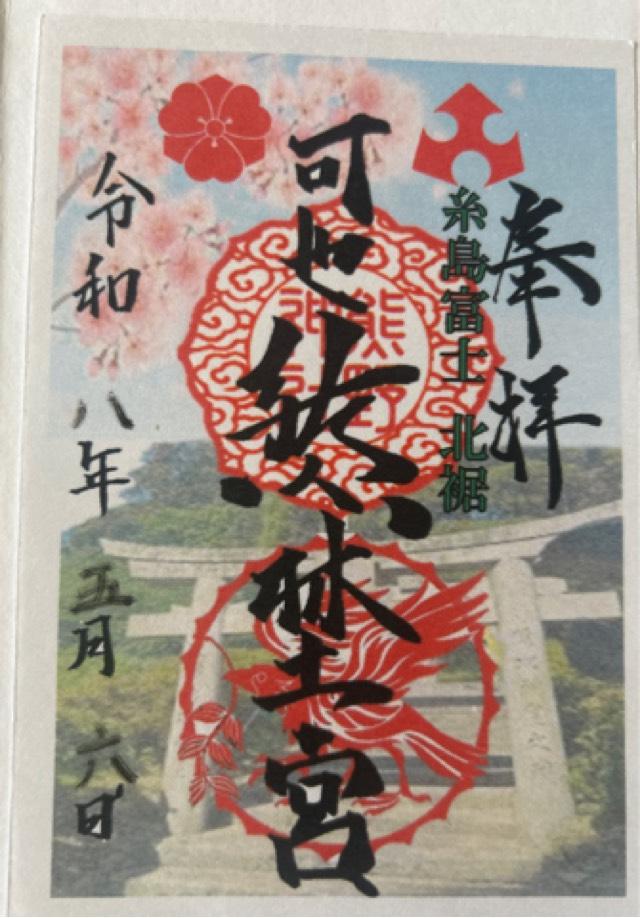 奉拝
糸島富士 北裾
可也
熊埜宮
熊野
神社
令和八年五月六日